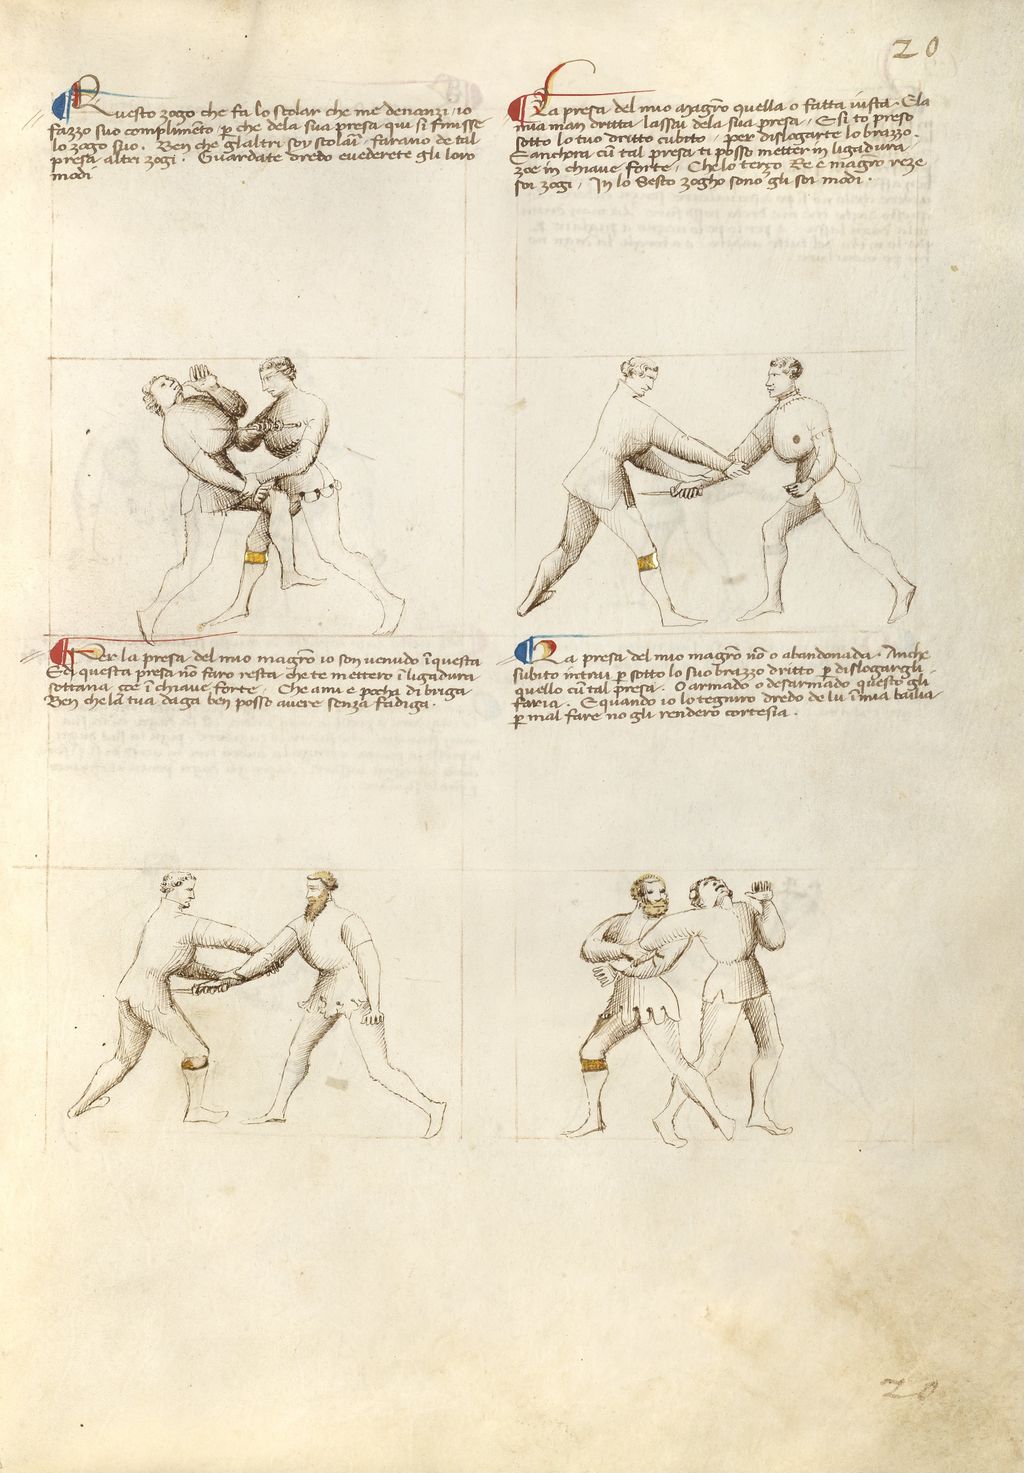 20
Questo zogo che fa lo scolar che me denanzi, io
fazzo suo complimēto p che dela sua presa qui si finisse
lo zogo suo. Ben che gl altri soy scolari farano de tal
presa altri zogi. Guardate dredo e vederete gli loro
modi
La presa del mio magrō quella o fatta iusta. E la
mia man dritta lassai dela sua presa, E si to preso
sotto lo tuo dritto cubito, per dislogarte lo brazzo.
E anchora cū tal presa ti posso metter in ligadura
zoe in chiave forte, Che lo terzo Re e magrō reze
soi zogi, In lo Sesto zogho sono gli soi modi.
Per la presa del mio magrō io son venudo ī questa
E di questa presa nō faro resta che te mettero ī ligadura
sottana zoe ī chiave forte, Che ami e pocha di briga
Ben che la tua daga ben posso avere senza fadiga.
La presa del mio magrō nō o abandonada. Anche
subito intrai p sotto lo suo brazzo dritto p dislogargli
quello cū tal presa. O armado o desarmado questo gli
faria. E quando io lo tegniro dredo de lu ī mia bailia
p mal fare no gli rendero cortesia.
20